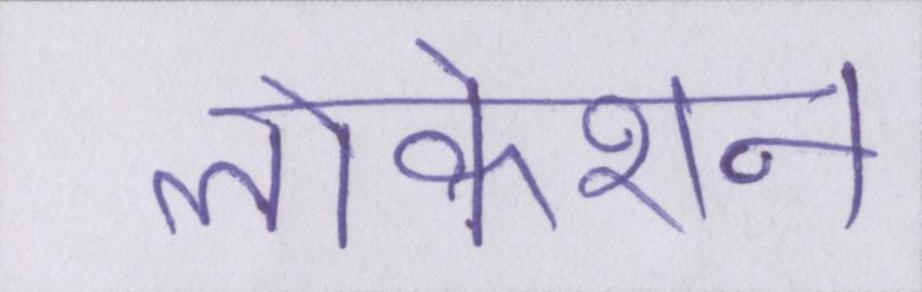 लोकेशन